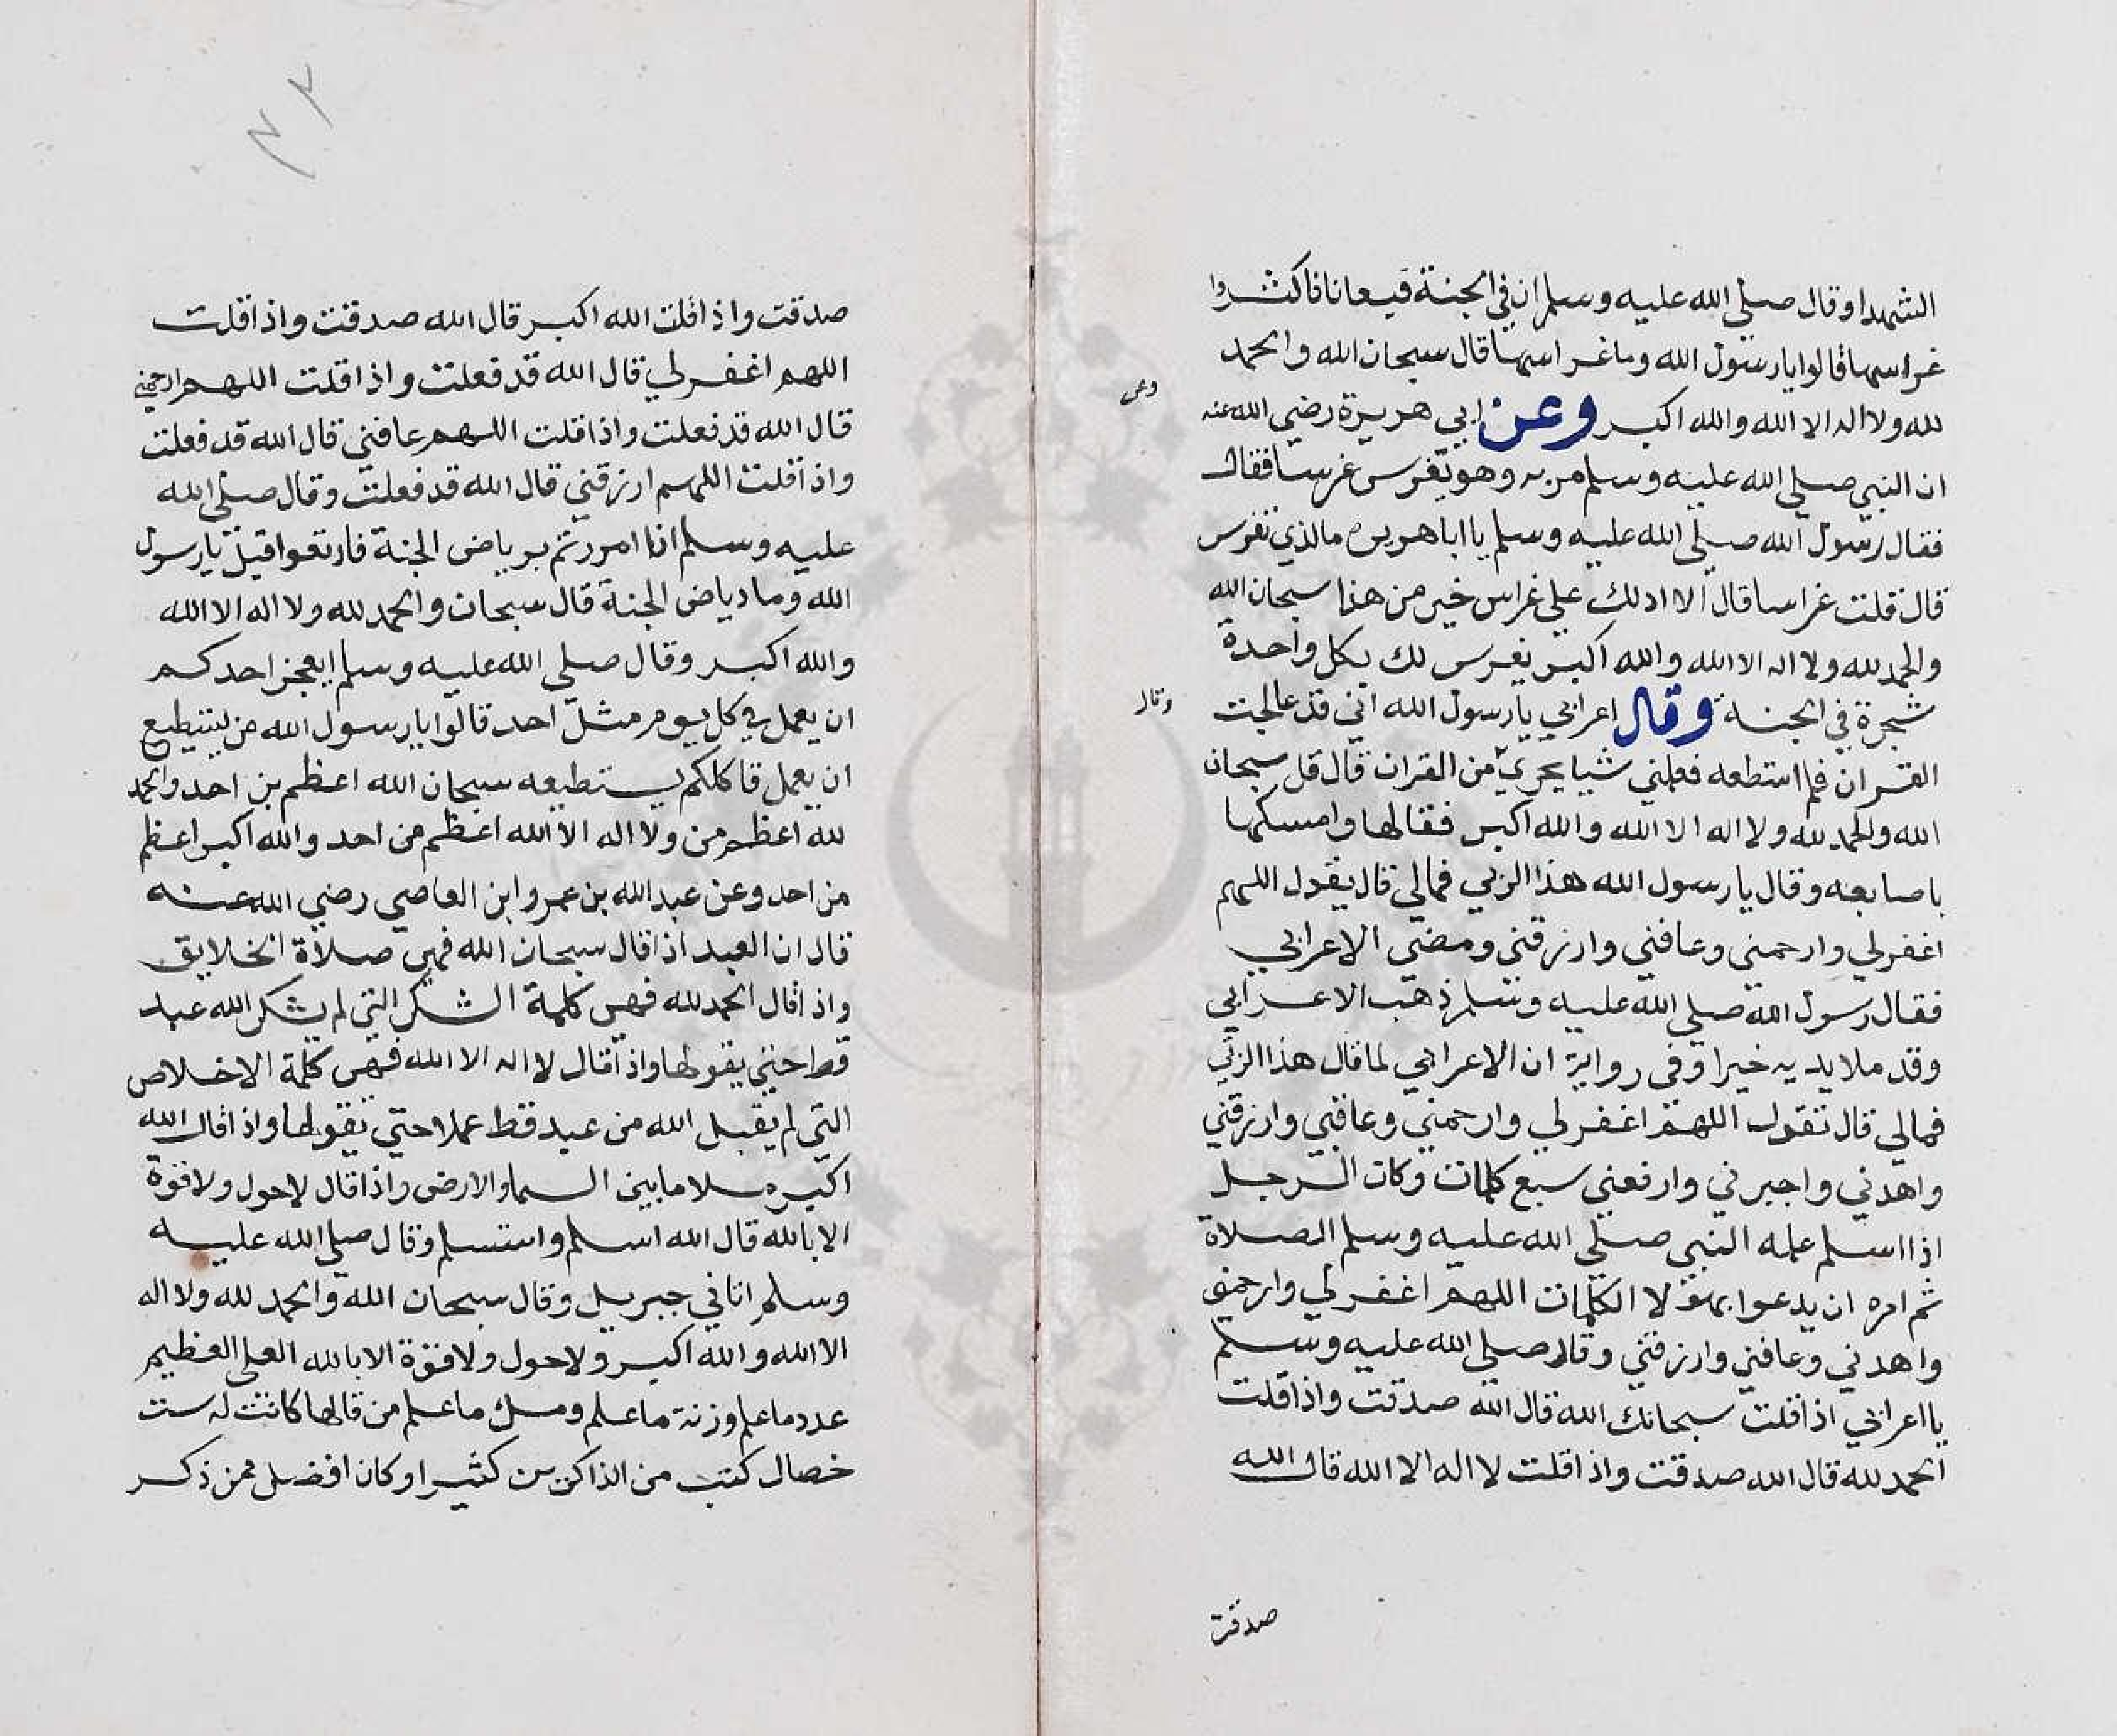 الشهدا وقال صلي الله عليه وسلم ان في الجنة قيعانا فاكثروا
غراسها قالوا يا رسول الله وما غراسها قال سبحان الله والحمد
لله ولا اله الا الله والله اكبر وعن ابي هريرة رضي الله عنه
وعن
ان النبي صلي الله عليه وسلم مر به وهو يغرس غرسا فقال
فقال رسول الله صلي الله عليه وسلم يا ابا هريره ما الذي تغرس
قال قلت غراسا قال الا ادلك علي غراس خير من هذا سبحان الله
والحمد لله ولا اله الا الله والله اكبر يغرس لك بكل واحدة
شجرة في الجنة وقال اعرابي يا رسول الله اني قد عالجت
وقال
القران فلم استطعه فعلمني شيا يجزي من القران قال قل سبحان
الله والحمد لله ولا اله الا الله والله اكبر فقالها وامسكها
باصابعه وقال يا رسول الله هذا لربي فمالي قال يقول اللهم
اغفرلي وارحمني وعافني وارزقني ومضي الاعرابي
فقال رسول الله صلي الله عليه وسلم ذهب الاعرابي
وقد ملا يديه خيرا وفي رواية ان الاعرابي لما قال هذا لربي
فمالي قال تقول اللهم اغفر لي وارحمني وعافني وارزقني
واهدني واجبرني وارفعني سبع كلمات وكان الرجل
اذا اسلم علمه النبي صلي الله عليه وسلم الصلاة
ثم امره ان يدعوا بهولا الكلمات اللهم اغفر لي وارحمني
واهدني وعافني وارزقني وقال صلي الله عليه وسلم
يا اعرابي اذا قلت سبحانك الله قال الله صدقت واذا قلت
الحمد لله قال الله صدقت واذا قلت لا اله الا الله قال الله
صدقت
صدقت واذا قلت الله اكبر قال الله صدقت واذا قلت
اللهم اغفر لي قال الله قد فعلت واذا قلت اللهم ارحمني
قال الله قد فعلت واذا قلت اللهم عافني قال الله قد فعلت
واذا قلت اللهم ارزقني قال الله قد فعلت وقال صلي الله
عليه وسلم اذا امررتم برياض الجنة فارتعوا قيل يا رسول
الله وما رياض الجنة قال سبحان والحمد لله ولا اله الا الله
والله اكبر وقال صلي الله عليه وسلم ايعجز احدكم
ان يعمل في كل يوم مثل احد قالوا يا رسول الله من يستطيع
ان يعمل قا كلكم يستطيعه سبحان الله اعظم من احد والحمد
لله اعظم من ولا اله الا الله اعظم من احد والله اكبر اعظم
من احد وعن عبد الله بن عمرو ابن العاصي رضي الله عنه
قال ان العبد اذا قال سبحان الله فهي صلاة الخلايق
واذا قال الحمد لله فهي كلمة الشكر التي لم يشكر الله عبد
قط حتي يقولها واذا قال لا اله الا الله فهي كلمة الاخلاص
التي لم يقبل الله من عبد قط عملا حتي يقولها واذا قال الله
اكبر ملا ما بين السما والارض واذا قال لا حول ولا قوة
الا بالله قال الله اسلم واستسلم وقال صلي الله عليه
وسلم اتاني جبريل وقال سبحان الله والحمد لله ولا اله
الا الله والله اكبر ولا حول ولا قوة الا بالله العلي العظيم
عدد ما علم وزنة ما علم ومل ما علم من قالها كانت له ست
خصال كتب من الذاكرين كثيرا وكان افضل ممن ذكر